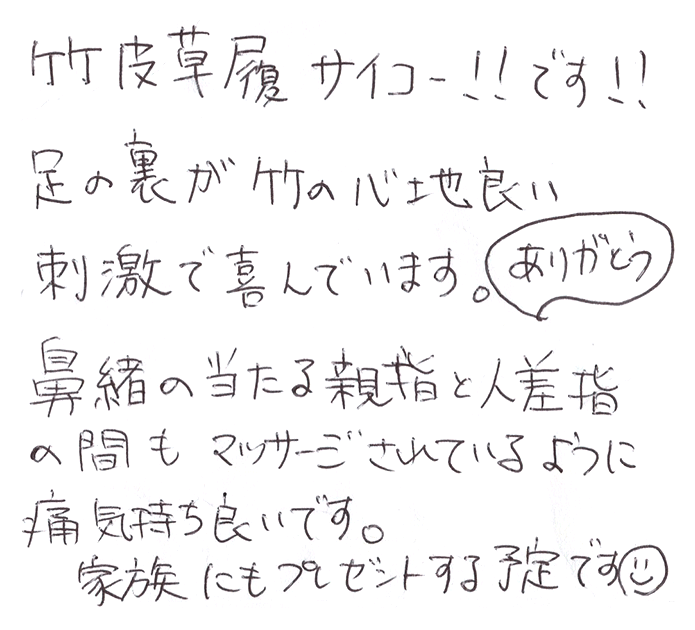 竹皮草履 サイコー!!です!!
足の裏が竹の心地良い
刺激で喜んでいます。
ありがどう
鼻緒の当たる親指と人差指
の間も マッサージされているように
痛気持ち良いです。
家族にもプレゼントする予定です☺